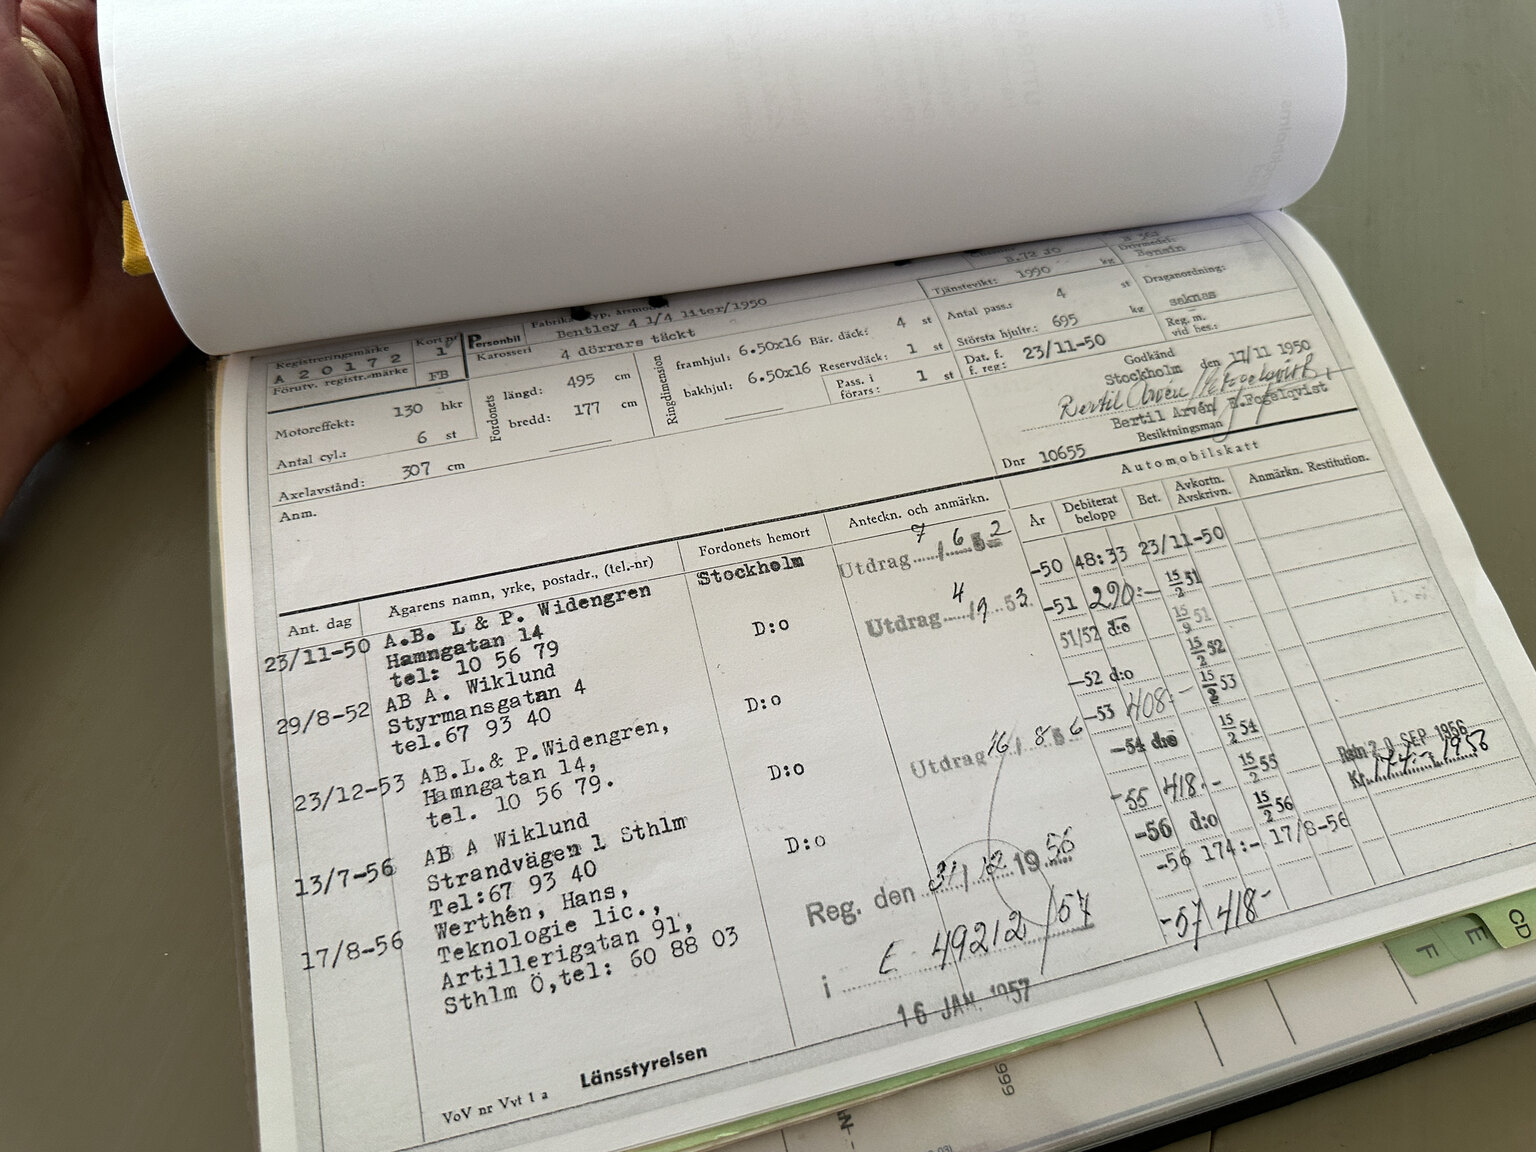 Bensin
Tjänstevikt: 1990 kg
Draganordning:
saknas
Antal pass.: 4 st
Reg. m.
vid bes.:
Största hjultr.: 695 kg
Dat. f.
f. reg: 23/11-50
Registreringsmärke
A 20172
Förutv. registr.-märke
Kort nr
1
FB
Personbil
Bentley 4 1/4 liter/1950
Karosseri 4 dörrars täckt
Motoreffekt: 130 hkr
Antal cyl.: 6 st
Axelavstånd: 307 cm
Anm.
Fordonets
längd: 495 cm
bredd: 177 cm
Ringdimension
framhjul: 6.50x16
bakhjul: 6.50x16
Bär. däck: 4 st
Reservdäck: 1 st
Pass. i
förars: 1 st
Godkänd
Stockholm den 17/11 1950
Bertil Arvén
Bertil Arvén E.Fogelqvist
Besiktningsman
Dnr 10655
Automobilskatt
Ant. dag
Ägarens namn, yrke, postadr., (tel.-nr)
Fordonets hemort
Anteckn. och anmärkn.
År
Debiterat
belopp
Bet.
Avkortn.
Avskrivn.
Anmärkn. Restitution.
23/11-50 A.B. L & P. Widengren Stockholm
Hamngatan 14
tel: 10 56 79
29/8-52 AB A. Wiklund D:o
Styrmansgatan 4
tel.67 93 40
23/12-53 AB.L.& P.Widengren, D:o
Hamngatan 14,
tel. 10 56 79.
13/7-56 AB A Wiklund D:o
Strandvägen 1 Sthlm
Tel:67 93 40
17/8-56 Werthén, Hans, D:o
Teknologie lic.,
Artillerigatan 91,
Sthlm Ö,tel: 60 88 03
Utdrag 7/6 52
Utdrag 4/9 53
Utdrag 16/8 56
Reg. den 31/12 1956
i E 49212/57
16 JAN. 1957
-50 48:33 23/11-50
-51 290:- 15/2 51
51/52 d:o 15/9 51
-52 d:o 15/2 52
-53 408:- 15/2 53
-54 d:o 15/2 54
-55 418.- 15/2 55
-56 d:o 15/2 56
-56 174:- 17/8-56
-57 418-
20 SEP. 1956
Kr. 174:-
Länsstyrelsen
VoV nr Vvt 1 a
F
E
CD
666